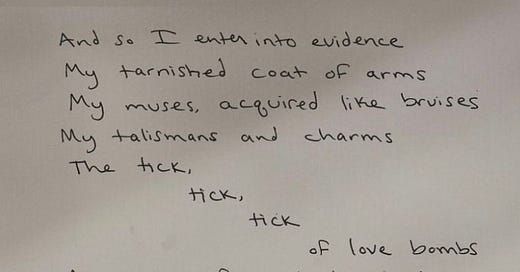 And so I enter into evidence
My tarnished coat of arms
My muses, acquired like bruises
My talismans and charms
The tick,
tick,
tick
of love bombs